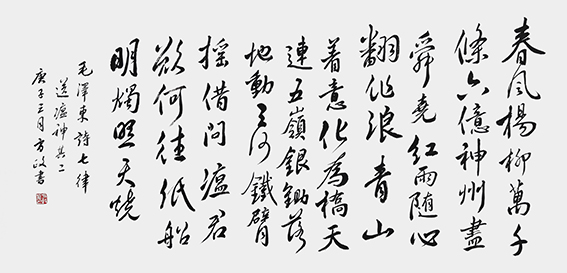 春風楊柳萬千
條六億神州盡
舜堯紅雨隨心
翻作浪青山
着意化為橋天
連五嶺銀鋤落
地動三河鐵臂
搖借問瘟君
欲何往紙船
明燭照天燒
毛澤東詩七律
送瘟神其二
庚子三月方政書